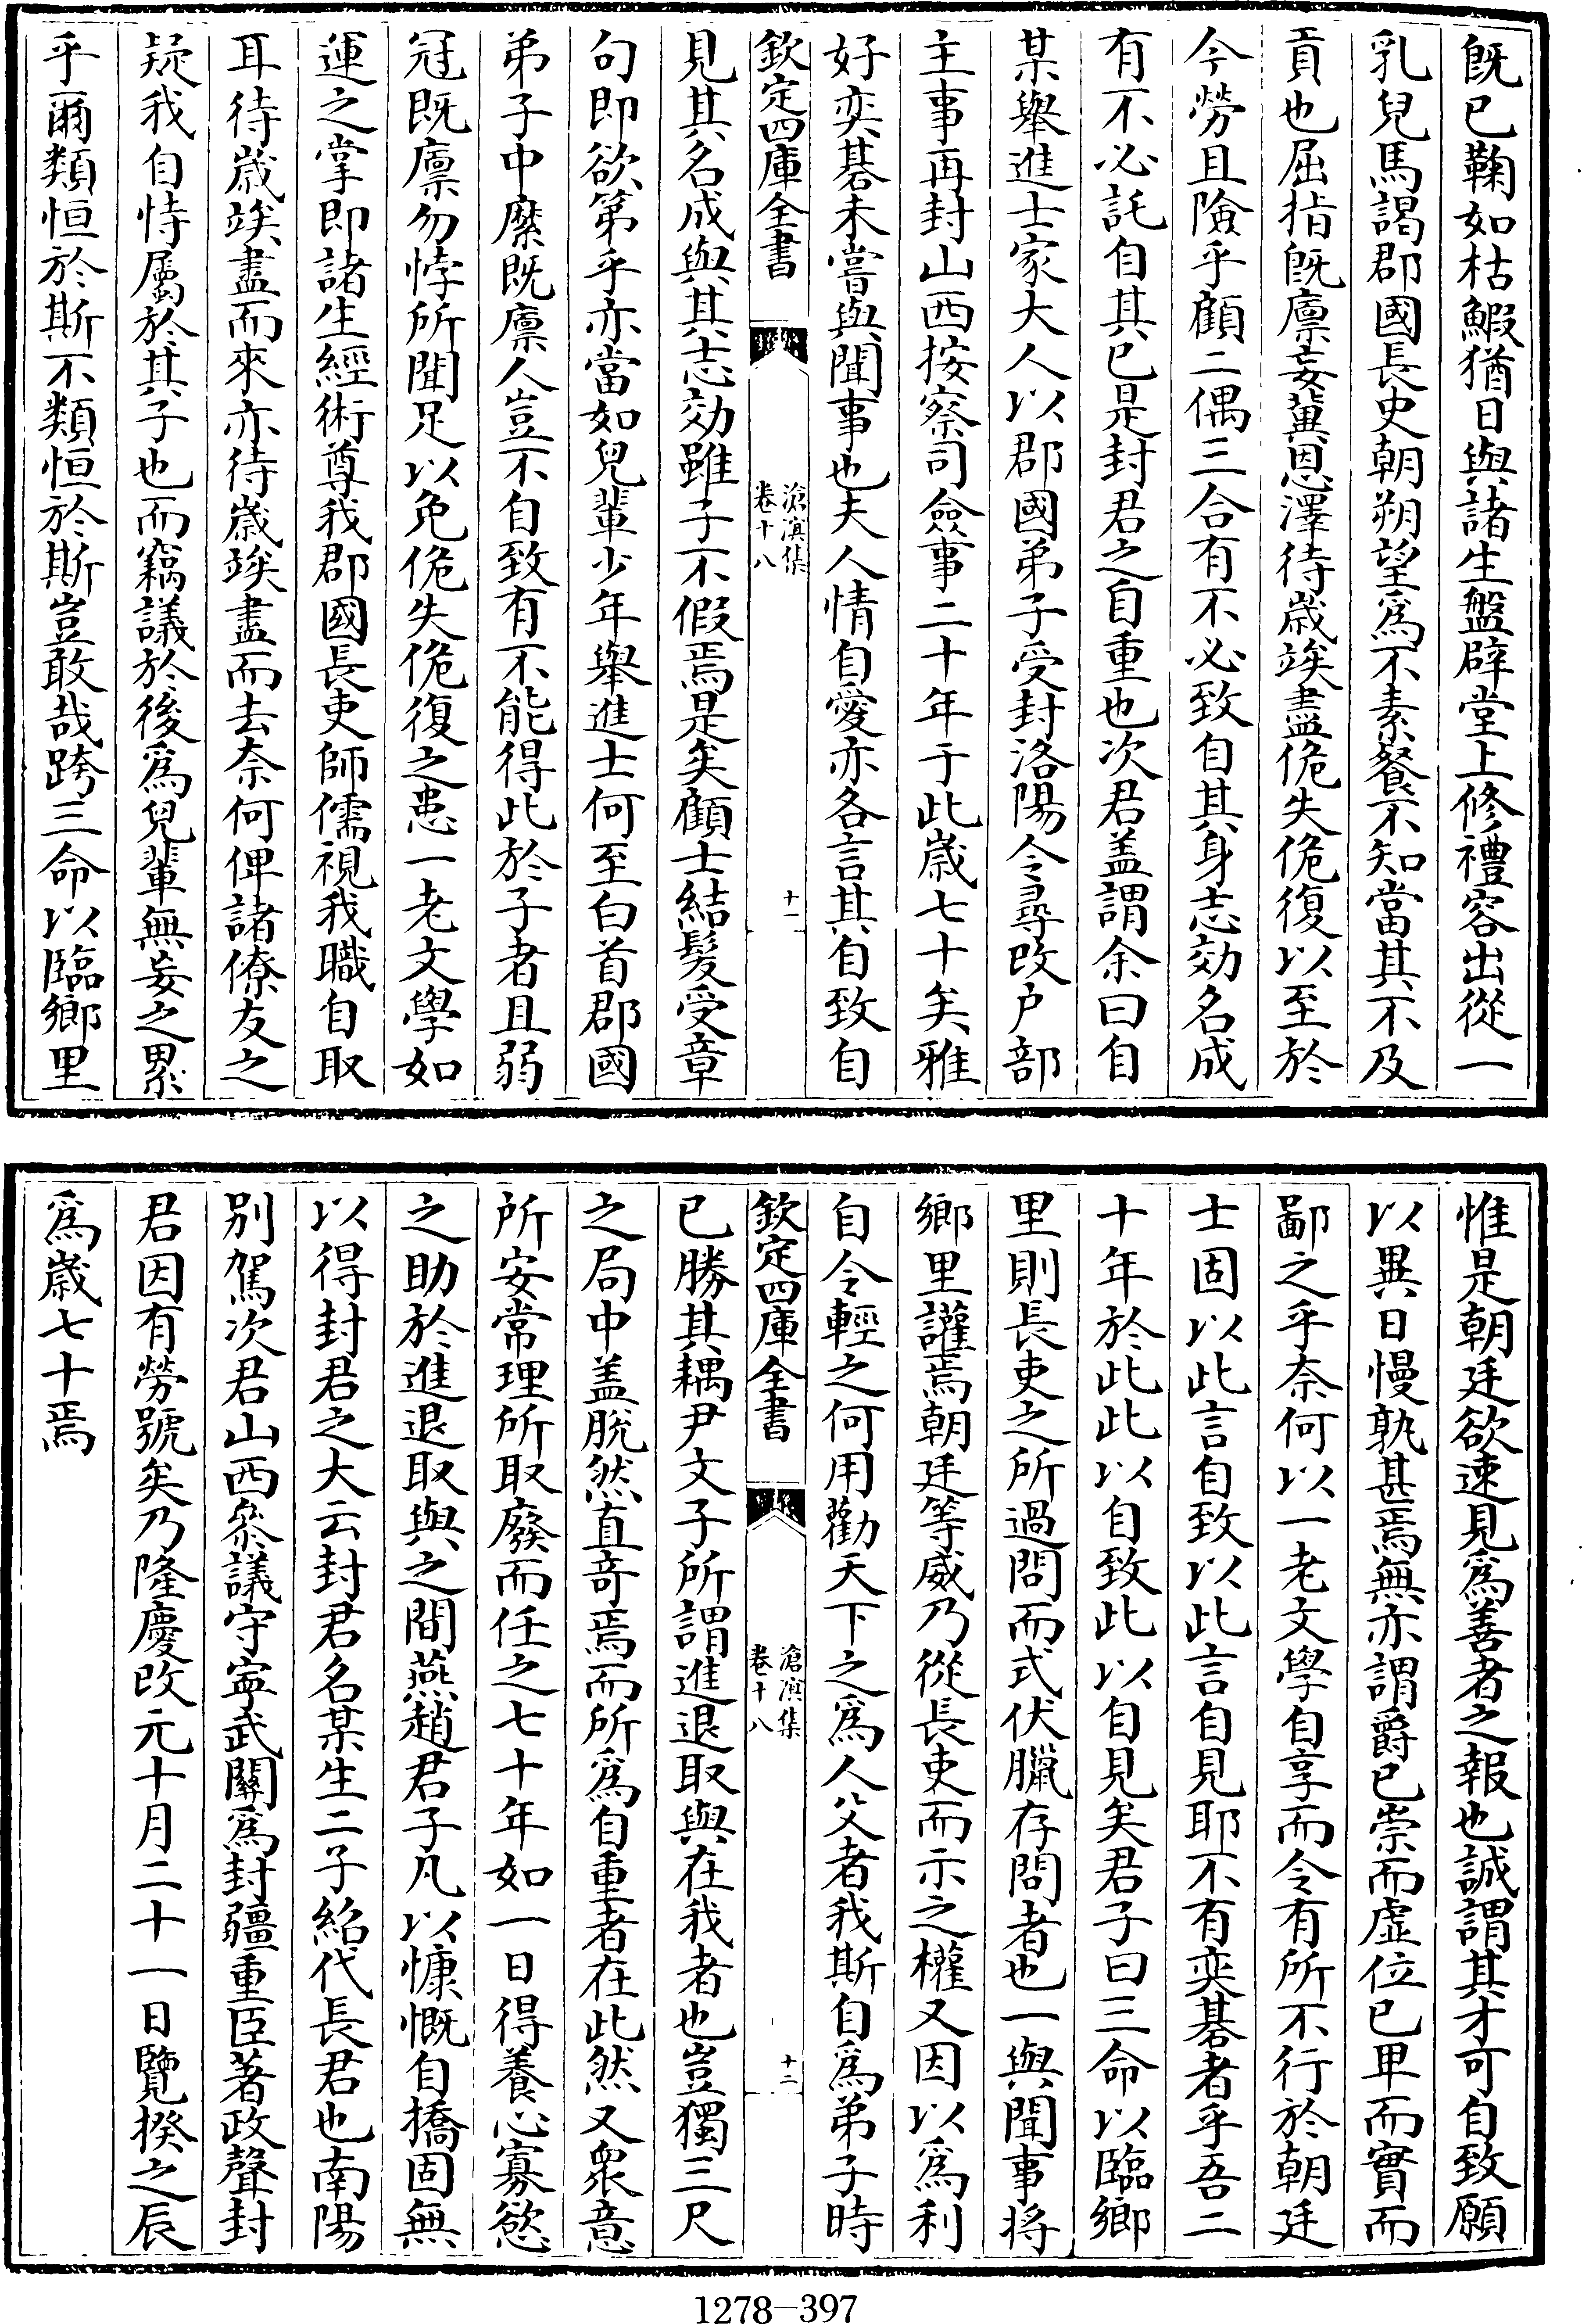 既已鞠如枯鰕猶日與諸生盤辟堂上修禮容出從一
乳兒馬謁郡國長吏朝朔望爲不素餐不知當其不及
貢也屈指既廪妄冀恩澤待歳竢盡佹失佹復以至於
今勞且險乎顧二偶三合有不必致自其身志効名成
有不必託自其已是封君之自重也次君盖謂余曰自
某舉進士家大人以郡國弟子受封洛陽令尋改户部
主事再封山西按察司僉事二十年于此歳七十矣雅
好奕棊未嘗與聞事也夫人情自愛亦各言其自致自
欽定四庫全書
滄溟集
卷十八
十一
見其名成與其志効雖子不假焉是矣顧士結髮受章
句即欲第乎亦當如兒輩少年舉進士何至白首郡國
弟子中縻既廪人豈不自致有不能得此於子者且弱
冠既廪勿悖所聞足以免佹失佹復之患一老文學如
運之掌即諸生經術尊我郡國長吏師儒視我職自取
耳待歳竢盡而來亦待歳竢盡而去奈何俾諸僚友之
疑我自恃屬於其子也而竊議於後爲兒輩無妄之累
乎爾類恒於斯不類恒於斯豈敢哉跨三命以臨鄉里
惟是朝廷欲速見爲善者之報也誠謂其才可自致願
以異日慢孰甚焉無亦謂爵已崇而虚位已卑而實而
鄙之乎奈何以一老文學自享而令有所不行於朝廷
士固以此言自致以此言自見耶不有奕棊者乎吾二
十年於此此以自致此以自見矣君子曰三命以臨鄉
里則長吏之所過問而式伏臘存問者也一與聞事將
鄉里讙焉朝廷等威乃從長吏而示之權又因以爲利
自令輕之何用勸天下之爲人父者我斯自爲弟子時
欽定四庫全書
滄溟集
卷十八
十二
已勝其耦尹文子所謂進退取與在我者也豈獨三尺
之局中盖脫然直竒焉而所爲自重者在此然又衆意
所安常理所取廢而任之七十年如一日得養心寡慾
之助於進退取與之間燕趙君子凡以慷慨自撟固無
以得封君之大云封君名某生二子紹代長君也南陽
别駕次君山西叅議守寧武關爲封疆重臣著政聲封
君因有勞號矣乃隆慶改元十月二十一日覽揆之辰
爲歳七十焉
1278-397